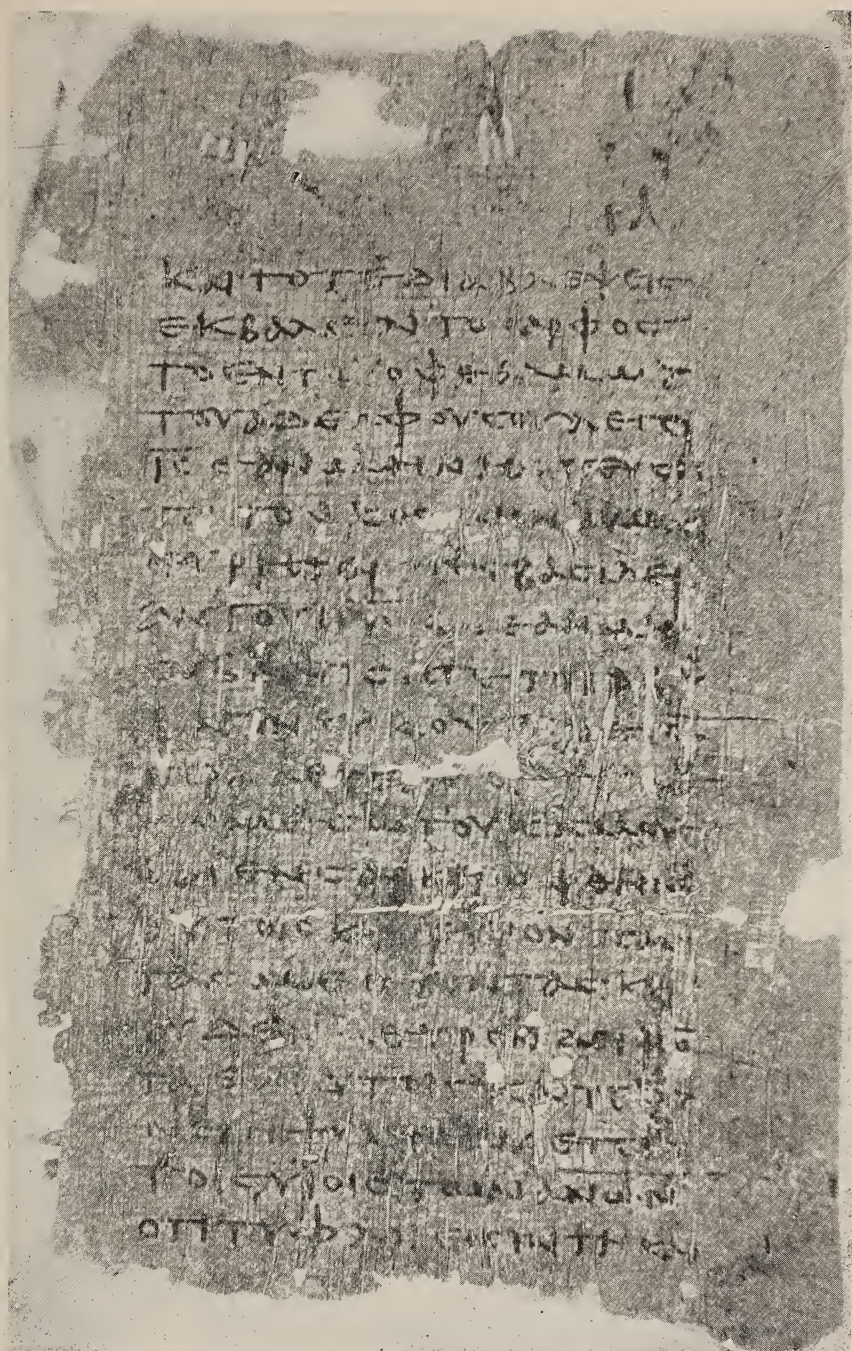 ΚΑΙ ΤΟΤΕ ΔΙΑΒΛΕΨΕΙϹ
ΕΚΒΑΛΕΙΝ ΤΟ ΚΑΡΦΟϹ
ΤΟ ΕΝ ΤΩ ΟΦΘΑΛΜΩ
ΤΟΥ ΑΔΕΛΦΟΥ ϹΟΥ ΛΕΓΕΙ
ΙϹ ΕΑΝ ΜΗ ΝΗϹΤΕΥϹΗ
ΤΑΙ ΤΟΝ ΚΟϹΜΟΝ ΟΥ ΜΗ
ΕΥΡΗΤΑΙ ΤΗΝ ΒΑϹΙΛΕΙ
ΑΝ ΤΟΥ ΘΥ ΚΑΙ ΕΑΝ ΜΗ
ϹΑΒΒΑΤΙϹΗΤΕ ΤΟ ϹΑΒ
ΒΑΤΟΝ ΟΥΚ ΟΨΕϹΘΕ ΤΟ
ΠΡΑ ΛΕΓΕΙ ΙϹ ΕϹΤΗΝ
ΕΝ ΜΕϹΩ ΤΟΥ ΚΟϹΜΟΥ
ΚΑΙ ΕΝ ϹΑΡΚΙ ΩΦΘΗΝ
ΑΥΤΟΙϹ ΚΑΙ ΕΥΡΟΝ ΠΑΝ
ΤΑϹ ΜΕΘΥΟΝΤΑϹ ΚΑΙ
ΟΥΔΕΝΑ ΕΥΡΟΝ ΔΕΙΨΩ
ΤΑ ΕΝ ΑΥΤΟΙϹ ΚΑΙ ΠΟ
ΝΕΙ Η ΨΥΧΗ ΜΟΥ ΕΠΙ
ΤΟΙϹ ΥΙΟΙϹ ΤΩΝ ΑΝΩΝ
ΟΤΙ ΤΥΦΛΟΙ ΕΙϹΙΝ ΤΗ